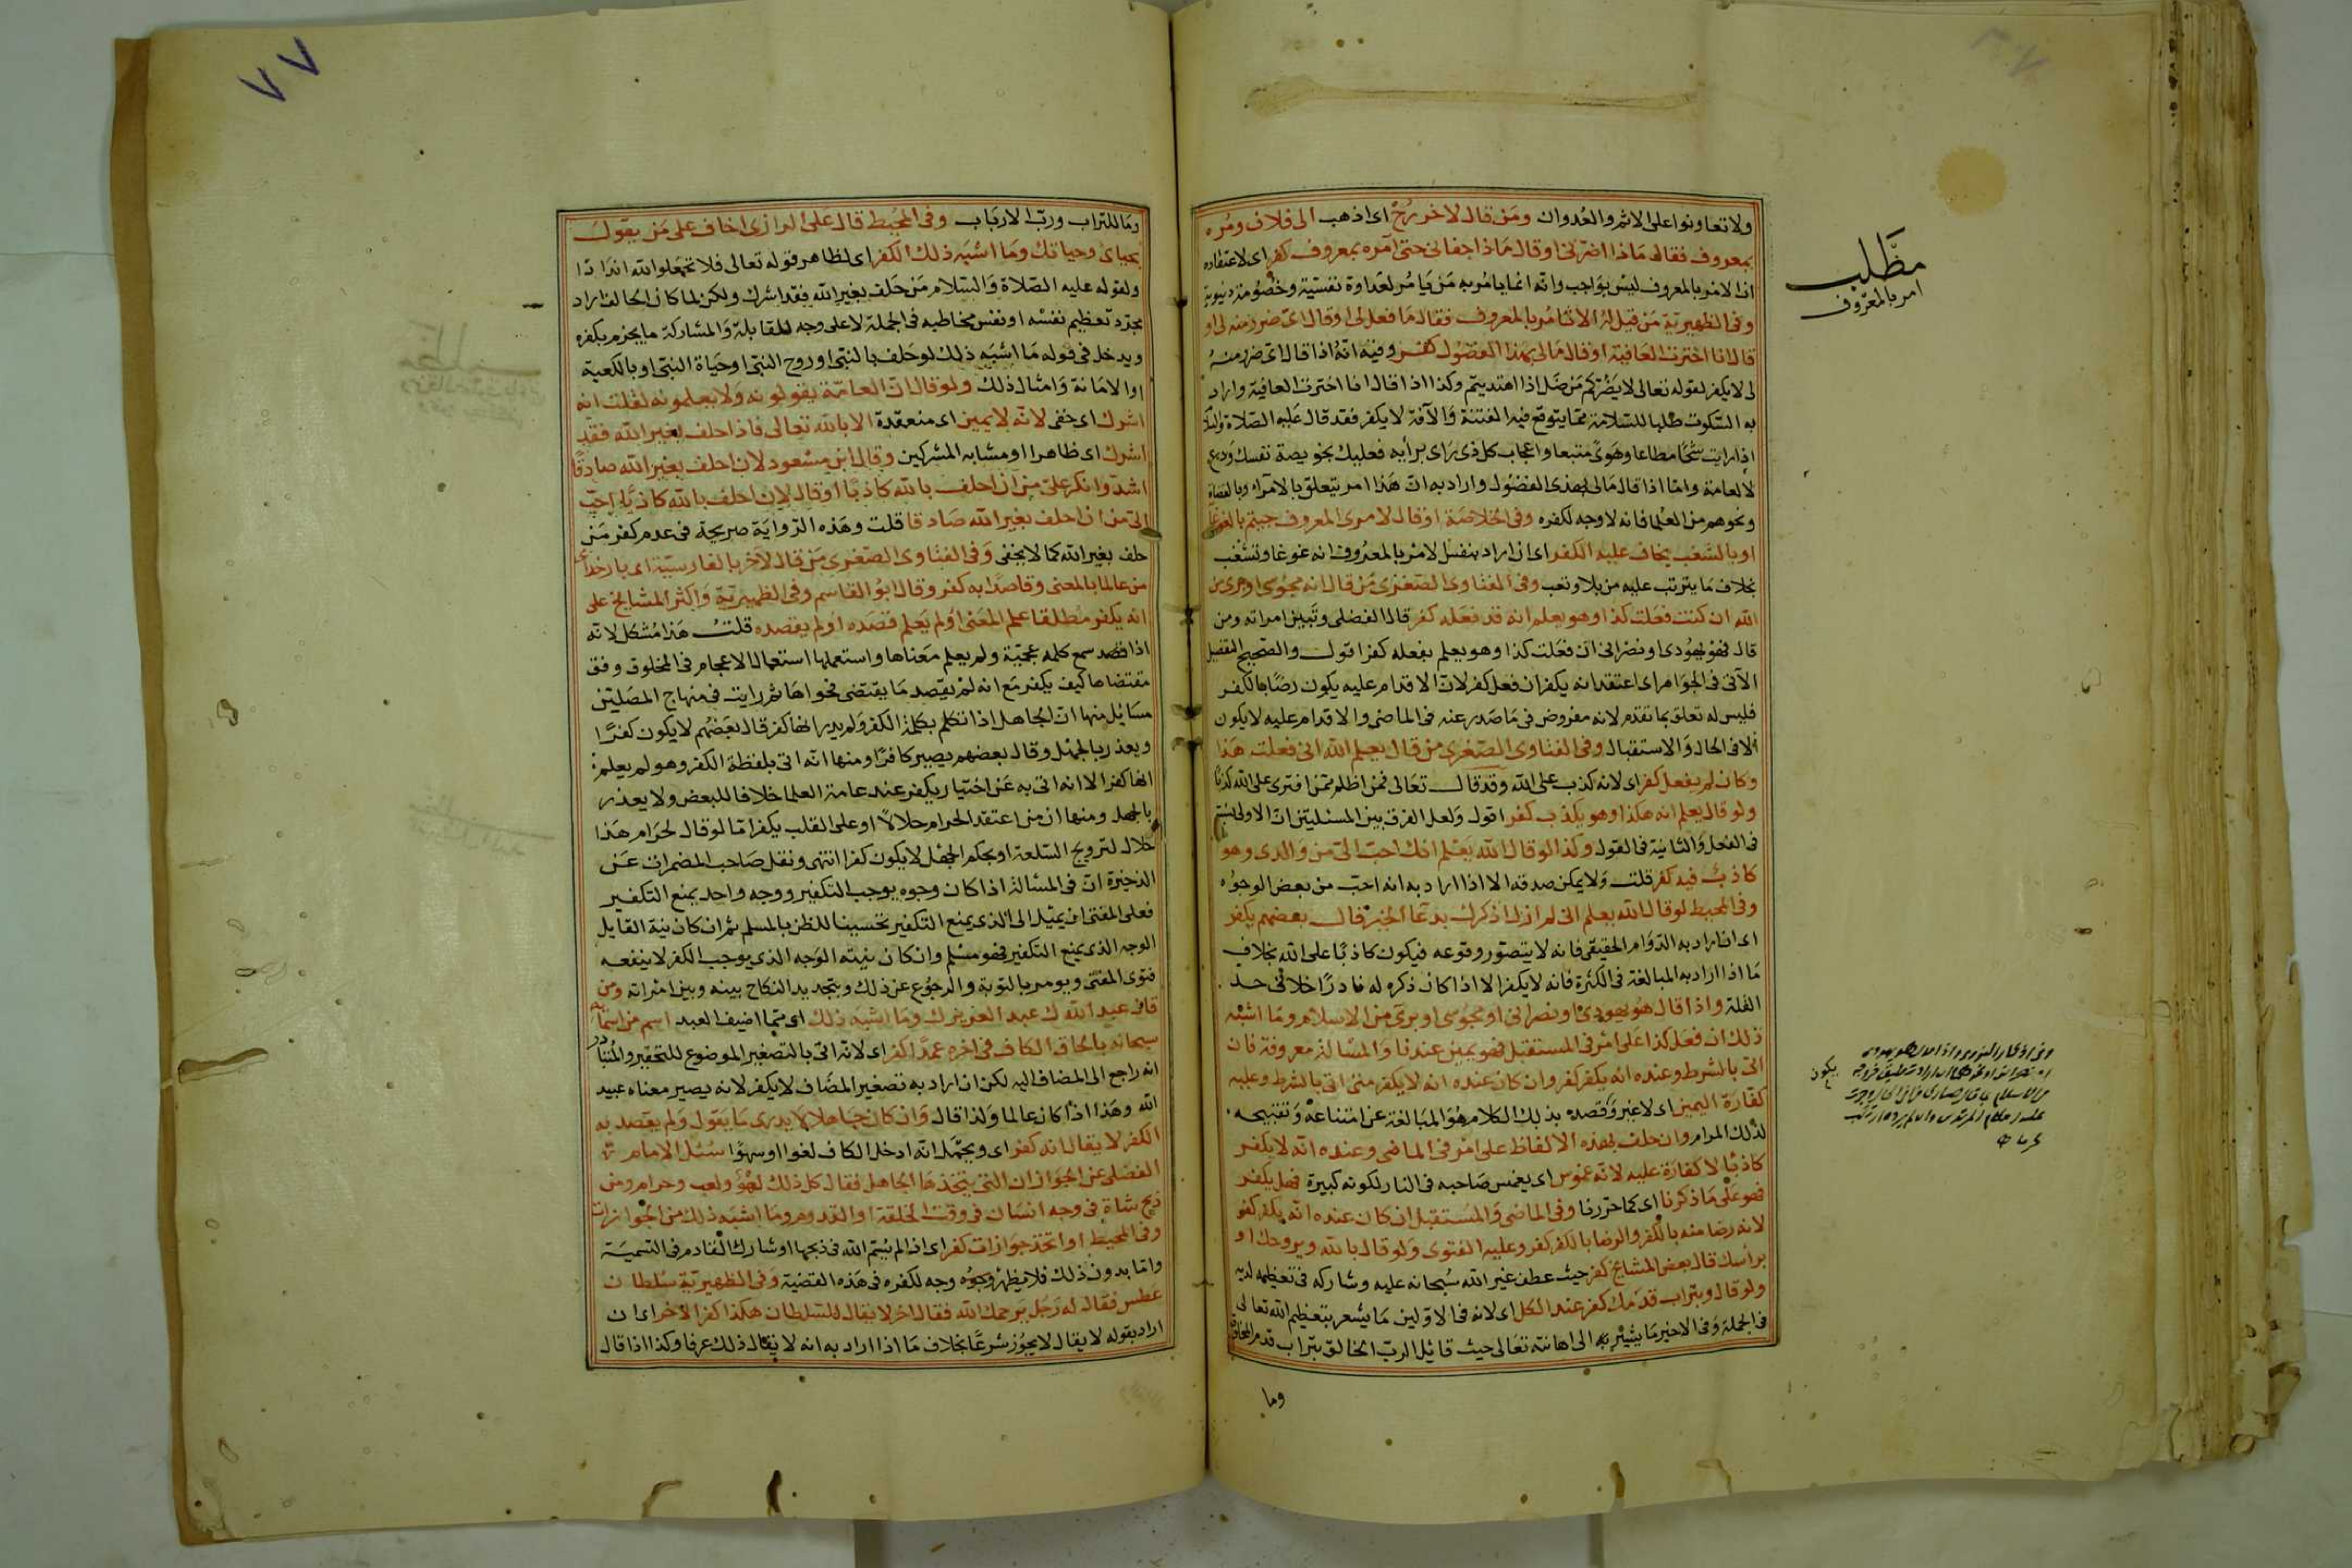 ولا تعاونوا على الاثم والعدوان ومن قال لاخر رح اى اذهب الى فلان ومره
بمعروف فقال ماذا اضرنى او قال ماذا جفانى حتى آمره بمعروف كفر اى لاعتقاده
ان الامر بالمعروف ليس بواجب وانه انما يامر به من يامر لعداوة نفسية وخصومة دنيوية
وفى الظهيرية من قيل له الا تامر بالمعروف فقال ما فعل لى او قال اى ضرر منه لى او
قال انا اخترت العافية او قال مالى بهذا الفضول كفر وفيه انه اذا قال اى ضرر منه
لى لا يكفر لقوله تعالى لا يضركم من ضل اذا اهتديتم وكذا اذا قال انا اخترت العافية واراد
به السكوت طلبا للسلامة مما يتوقع فيه الفتنة والآفة لا يكفر فقد قال عليه الصلاة والسلام
اذا رايت شحا مطاعا وهوى متبعا واعجاب كل ذى راى برأيه فعليك بخويصة نفسك ودع
لا العامة واما اذا قال مالى بهذى الفضول واراد به ان هذا امر يتعلق بالامراء وبالقضاة
ونحوهم من العلما فانه لا وجه لكفره وفى الخلاصة او قال لامرى المعروف جيتم بالغوغا
او بالشغب يخاف عليه الكفر اى ان اراد بنفس لامر بالمعروف انه غوغا وتشغب
بخلاف ما يترتب عليه من بلا وتعب وفى الفتاوى الصغرى من قال انه مجوسى او برى من
الله ان كنت فعلت كذا وهو يعلم انه قد فعله كفر قال الفضلى وتبين امراته ومن
قال فهو يهودى او نصرانى ان فعلت كذا وهو يعلم بفعله كفر اقول والصحيح التفصيل
الآتى فى الجواهر اى اعتقد انه يكفر ان فعل كفر لان الاقدام عليه يكون رضا بالكفر
فليس له تعلق بما تقدم لانه مفروض فى ما صدر عنه فى الماضى والاقدام عليه لا يكون
الا فى الحال والاستقبال وفى الفتاوى الصغرى من قال يعلم الله انى فعلت هذا
وكان لم يفعل كفر اى لانه كذب على الله وقد قال تعالى فمن اظلم ممن افترى على الله كذبا
ولو قال يعلم انه هكذا وهو يكذب كفر اقول ولعل الفرق بين المسئلتين ان الاولى
فى الفعل والثانية فى القول وكذا لو قال الله يعلم انك احب الى من والدى وهو
كاذب فيه كفر قلت ولا يمكن صدقه الا اذا اراد به انه احب من بعض الوجوه
وفى المحيط لو قال الله يعلم انى لم ازل اذكرك بدعا الخير قال بعضهم يكفر
اى ان اراد به الدوام الحقيقى فانه لا يتصور وقوعه فيكون كاذبا على الله بخلاف
ما اذا اراد به المبالغة فى الكثرة فانه لا يكفر الا اذا كان ذكره له نادرا خلا فى حد
القلة واذا قال هو يهودى او نصرانى او مجوسى او برى من الاسلام وما اشبه
ذلك ان فعل كذا على امر فى المستقبل فهو يمين عندنا والمسالة معروفة فان
اتى بالشرط وعنده انه يكفر كفر وان كان عنده انه لا يكفر متى اتى بالشرط وعليه
كفارة اليمين اى لا غير وقصده بذلك الكلام هو المبالغة عن امتناعه وتقبيحه
لذلك المرام وان حلف بهذه الالفاظ على امر فى الماضى وعنده انه لا يكفر
كاذبا لا كفارة عليه لانه غموس اى يغمس صاحبه فى النار لكونه كبيرة فهل يكفر
فهو على ما ذكرنا اى كما حررنا وفى الماضى والمستقبل ان كان عنده انه يكفر كفر
لانه رضا منه بالكفر والرضا بالكفر كفر وعليه الفتوى ولو قال بالله وبروحك او
براسك قال بعض المشايخ كفر حيث عطف غير الله سبحانه عليه وشاركه فى تعظيمه لديه
ولو قال وبتراب قدمك كفر عند الكل اى لانه فى الاولين ما يشعر بتعظيم الله تعالى
فى الجملة وفى الاخير ما يشير به الى اهانته تعالى حيث قابل الرب الخالق بتراب قدم المخلوق
وما
مطلب
امر بالمعروف
٧٧
وما للتراب ورب الارباب وفى المحيط قال على الرازى اخاف على من يقول
بحياى وحياتك وما اشبه ذلك الكفر اى لظاهر قوله تعالى فلا تجعلوا لله اندادا
ولقوله عليه الصلاة والسلام من حلف بغير الله فقد اشرك ولكن لما كان الحالف اراد
مجرد تعظيم نفسه او نفس مخاطبه فى الجملة لا على وجه المقابلة والمشاركة ما يجزم بكفره
ويدخل فى قوله ما اشبه ذلك لو حلف بالنبى او روح النبى او حياة النبى او بالكعبة
او الامانة وامثال ذلك ولو قال ان العامة يقولونه ولا يعلمونه لقلت انه
اشرك اى خفى لانه لا يمين اى منعقدة الا بالله تعالى فاذا حلف بغير الله فقد
اشرك اى ظاهرا او مشابه المشركين وقال ابن مسعود لان احلف بغير الله صادقا
اشد وانكر على من ان احلف بالله كاذبا او قال لان احلف بالله كاذبا احب
الى من ان احلف بغير الله صادقا قلت وهذه الرواية صريحة فى عدم كفر من
حلف بغير الله كما لا يخفى وفى الفتاوى الصغرى من قال لآخر بالفارسية اى بار خداى
من عالما بالمعنى وقاصدا به كفر وقال ابو القاسم وفى الظهيرية واكثر المشايخ على
انه يكفر مطلقا علم المعنى او لم يعلم قصده او لم يقصده قلت هذا مشكل لانه
اذا قصد سمع كلمه عجمية ولم يعلم معناها واستعملها استعمال الاعجام فى المخلوق وفق
مقتضاها كيف يكفر مع انه لم يقصد ما يقتضى فحواها ثم رايت فى منهاج المصلين
مسايل منها ان الجاهل اذا تكلم بكلمة الكفر ولم يدر انها كفر قال بعضهم لا يكون كفرا
ويعذر بالجهل وقال بعضهم يصير كافرا ومنها انه اتى بلفظة الكفر وهو لم يعلم
انها كفر الا انه اتى به عن اختيار يكفر عند عامة العلما خلافا للبعض ولا يعذر
بالجهل ومنها ان من اعتقد الحرام حلالا او على القلب يكفر اما لو قال لحرام هذا
حلال لترويج السلعة او بحكم الجهل لا يكون كفرا انتهى ونقل صاحب المضمرات عن
الذخيرة ان فى المسالة اذا كان وجوه يوجب التكفير ووجه واحد يمنع التكفير
فعلى المفتى ان يميل الى الذى يمنع التكفير تحسينا للظن بالمسلم ثم ان كان نية القايل
الوجه الذى يمنع التكفير فهو مسلم وان كان نيته الوجه الذى يوجب الكفر لا ينفعه
فتوى المفتى ويومر بالتوبة والرجوع عن ذلك وبتجديد النكاح بينه وبين امراته ومن
قال عبد الله ك عبد العزيزك وما اشبه ذلك اى مما اضيف العبد اسم من اسمائه
سبحانه بالحاق الكاف فى اخره عمدا كفر اى لانه اتى بالتصغير الموضوع للتحقير والمتبادر
انه راجع الى المضاف اليه لكن ان اراد به تصغير المضاف لا يكفر لانه يصير معناه عبيد
الله وهذا اذا كان عالما ولذا قال وان كان جاهلا لا يدرى ما يقول ولم يقصد به
الكفر لا يقال انه كفر اى ويحتمل انه ادخل الكاف لغوا او سهوا سئل الامام
الفضلى عن الجوازات التى يتخذها الجاهل فقال كل ذلك لهو ولعب وحرام ومن
ذبح شاة فى وجه انسان فى وقت الخلقة او القدوم وما اشبه ذلك من الجوازات
وفى المحيط او اتخذ جوازات كفر اى اذا لم يسم الله فى ذبحها او شارك القادم فى التسمية
واما بدون ذلك فلا يظهر وجوه وجه لكفره فى هذه القضية وفى الظهيرية سلطان
عطس فقال له رجل يرحمك الله فقال اخر لا يقال للسلطان هكذا كفر الآخر اى ان
اراد بقوله لا يقال لا يجوز شرعا بخلاف ما اذا اراد به انه لا يقال ذلك عرفا وكذا اذا قال